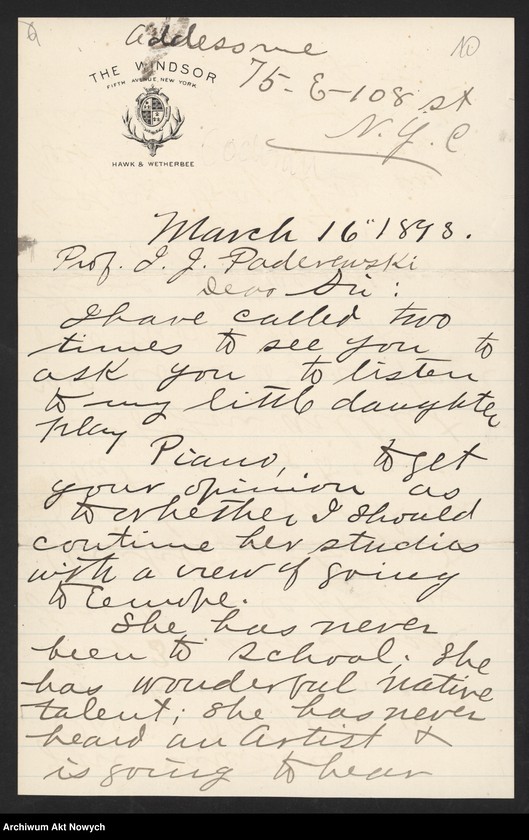 Address me
75-E-108 st
N.Y.C
THE WINDSOR
FIFTH AVENUE, NEW YORK
HAWK & WETHERBEE
March 16" 1898.
Prof. I. J. Paderewski
Dear Sir:
I have called two
times to see you to
ask you to listen
to my little daughter
play
Piano, to get
your opinion as
to whether I should
continue her studies
with a view of going
to Europe.
She has never
been to school; She
has wonderful native
talent; She has never
heard an Artist &
is going to hear
Archiwum Akt Nowych